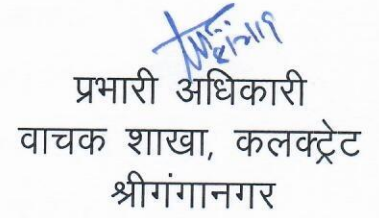 प्रभारी अधिकारी
वाचक शाखा, कलक्ट्रेट
श्रीगंगानगर